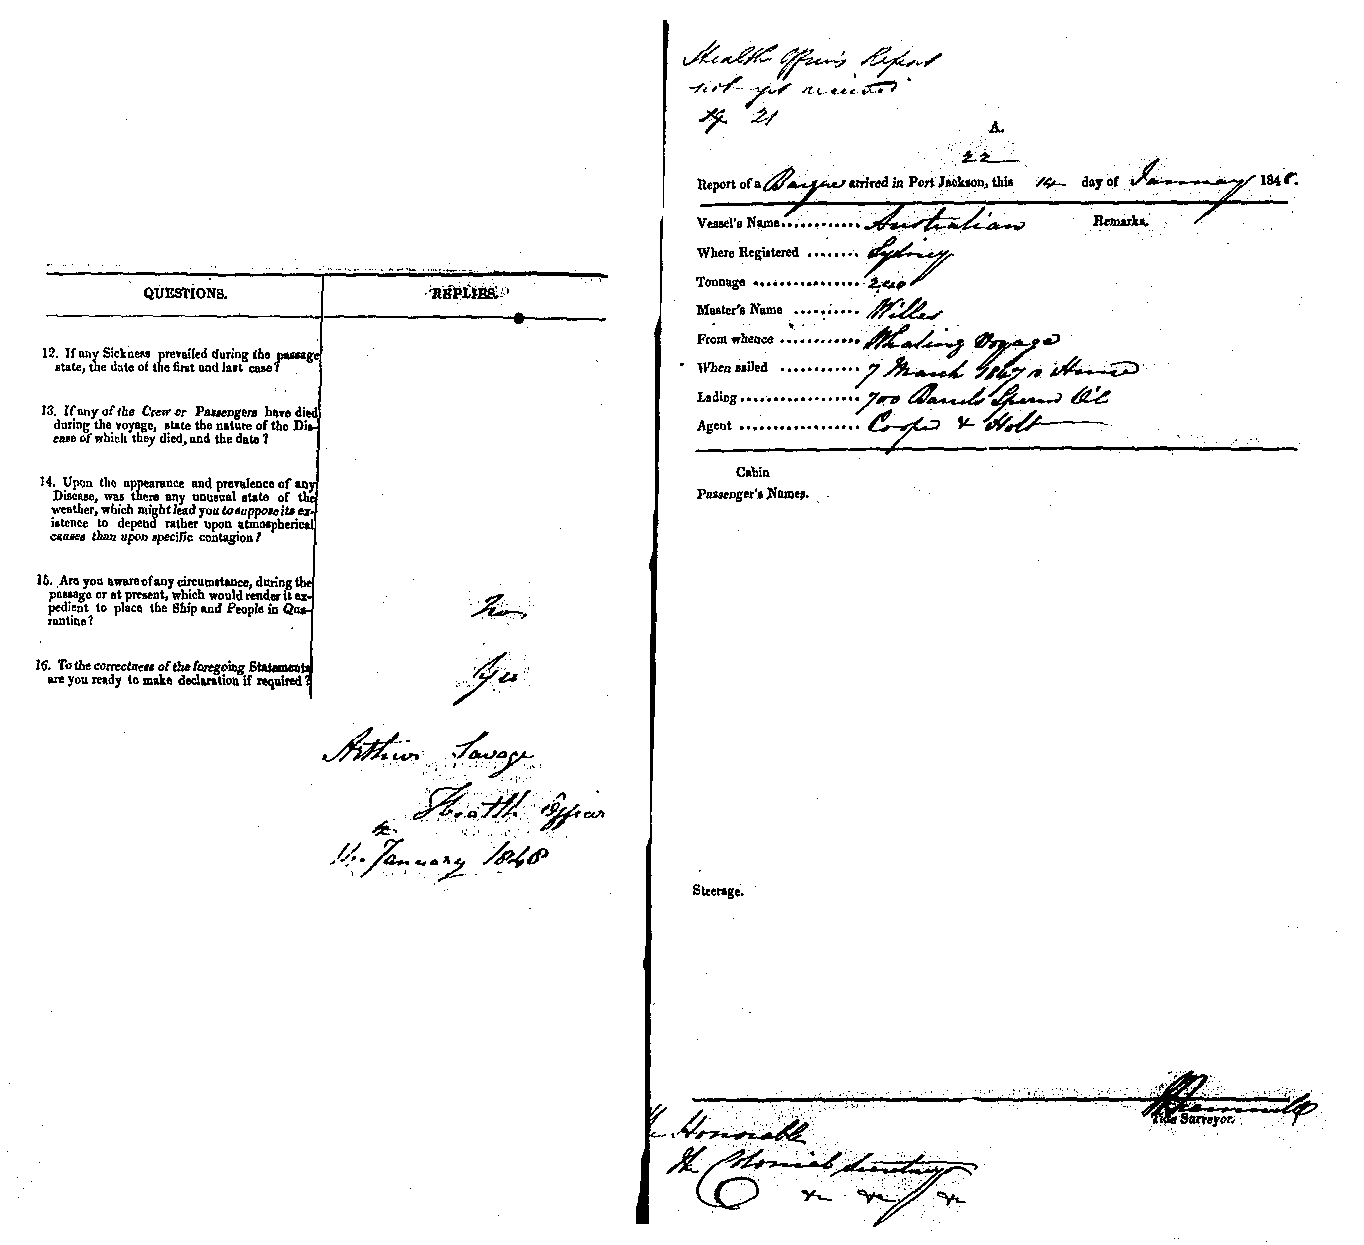 QUESTIONS. REPLIES.
12. If any Sickness prevailed during the passage
state, the date of the first and last case?
13. If any of the Crew or Passengers have died
during the voyage, state the nature of the Dis-
ease of which they died, and the date?
14. Upon the appearance and prevalence of any
Disease, was there any unusual state of the
weather, which might lead you to suppose its ex-
istence to depend rather upon atmospherical
causes than upon specific contagion?
15. Are you aware of any circumstance, during the
passage or at present, which would render it ex-
pedient to place the Ship and People in Qua-
rantine?
No
16. To the correctness of the foregoing Statements
are you ready to make declaration if required?
Yes
Arthur Savage
Health Officer
14. January 1848
Health Officer's Report
not yet received
21
A.
22
Report of a Barque arrived in Port Jackson, this 14 day of January 1848.
Vessel's Name............ Australian Remarks.
Where Registered ........ Sydney
Tonnage ................ 240
Master's Name .......... Willes
From whence ............ Whaling Voyage
When sailed ............ 7 March 1847 Hence
Lading.................. 700 Barrels Sperm Oil
Agent .................. Cooper & Holt
Cabin
Passenger's Names.
Steerage.
Tide Surveyor.
The Honorable
The Colonial Secretary
&c &c &c